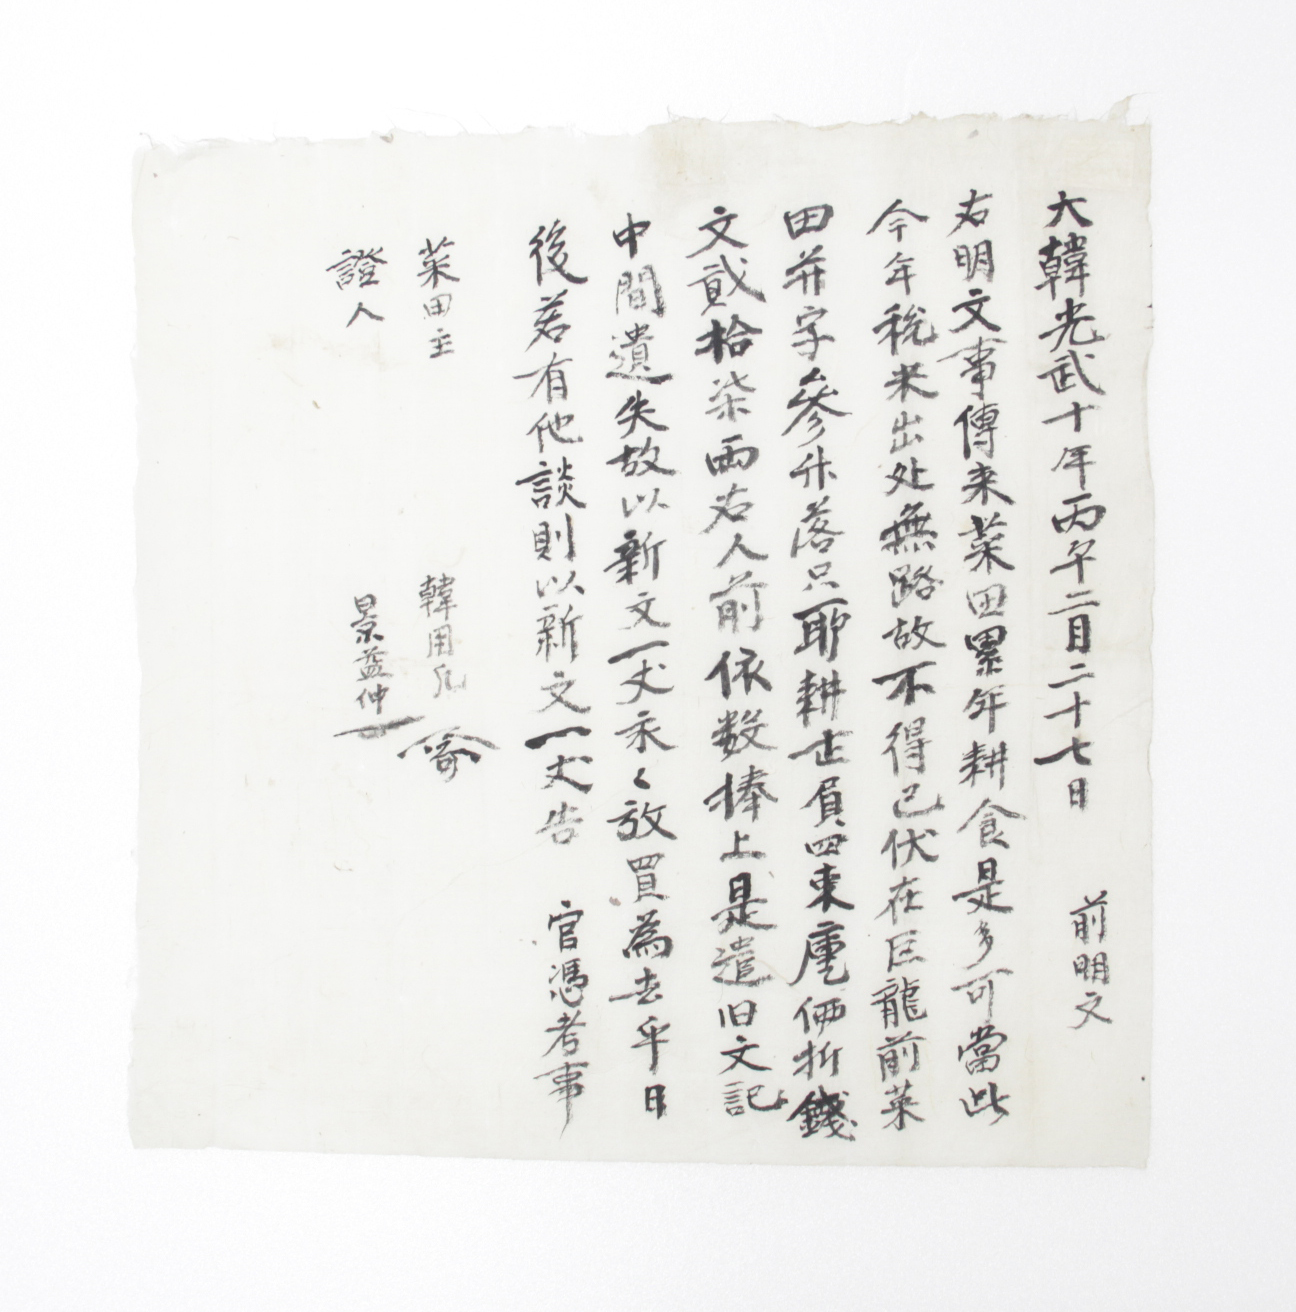 大韓光武十年丙午二月二十七日 前明文
右明文事傳来菜田累年耕食是多可當此
今年稅米出处無路故不得已伏在巨龍前菜
田芥字參升落只耶耕七負四束庫価折錢
文貳拾柒両右人前依数捧上是遣旧文記
中間遺失故以新文一丈永々放買為去乎日
後若有他談則以新文一丈告 官憑考事
菜田主 韓用
證人 景益仲